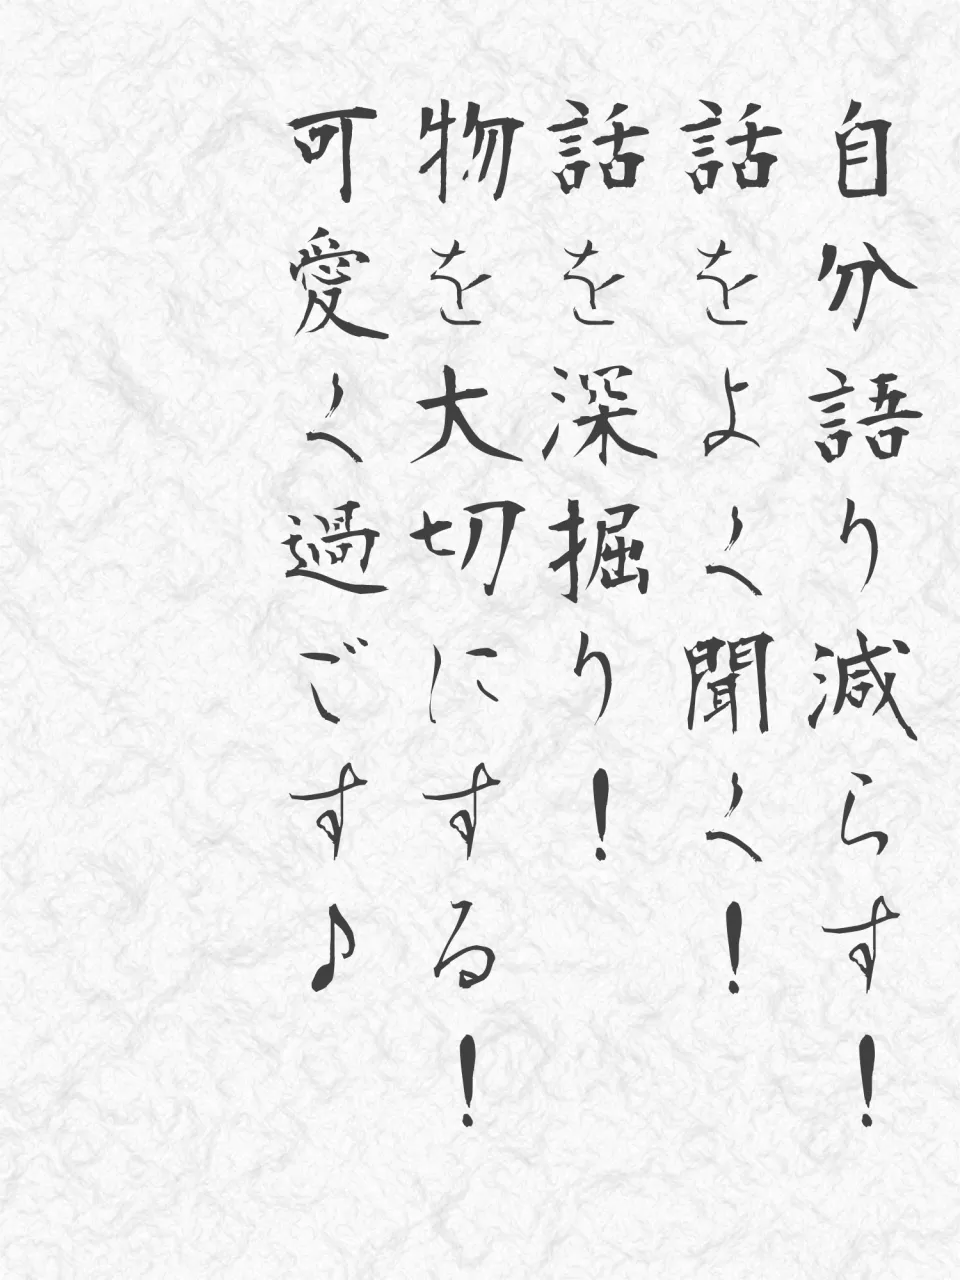 自分語り減らす!
話をよく聞く!
話を深掘り!
物を大切にする!
可愛く過ごす♪